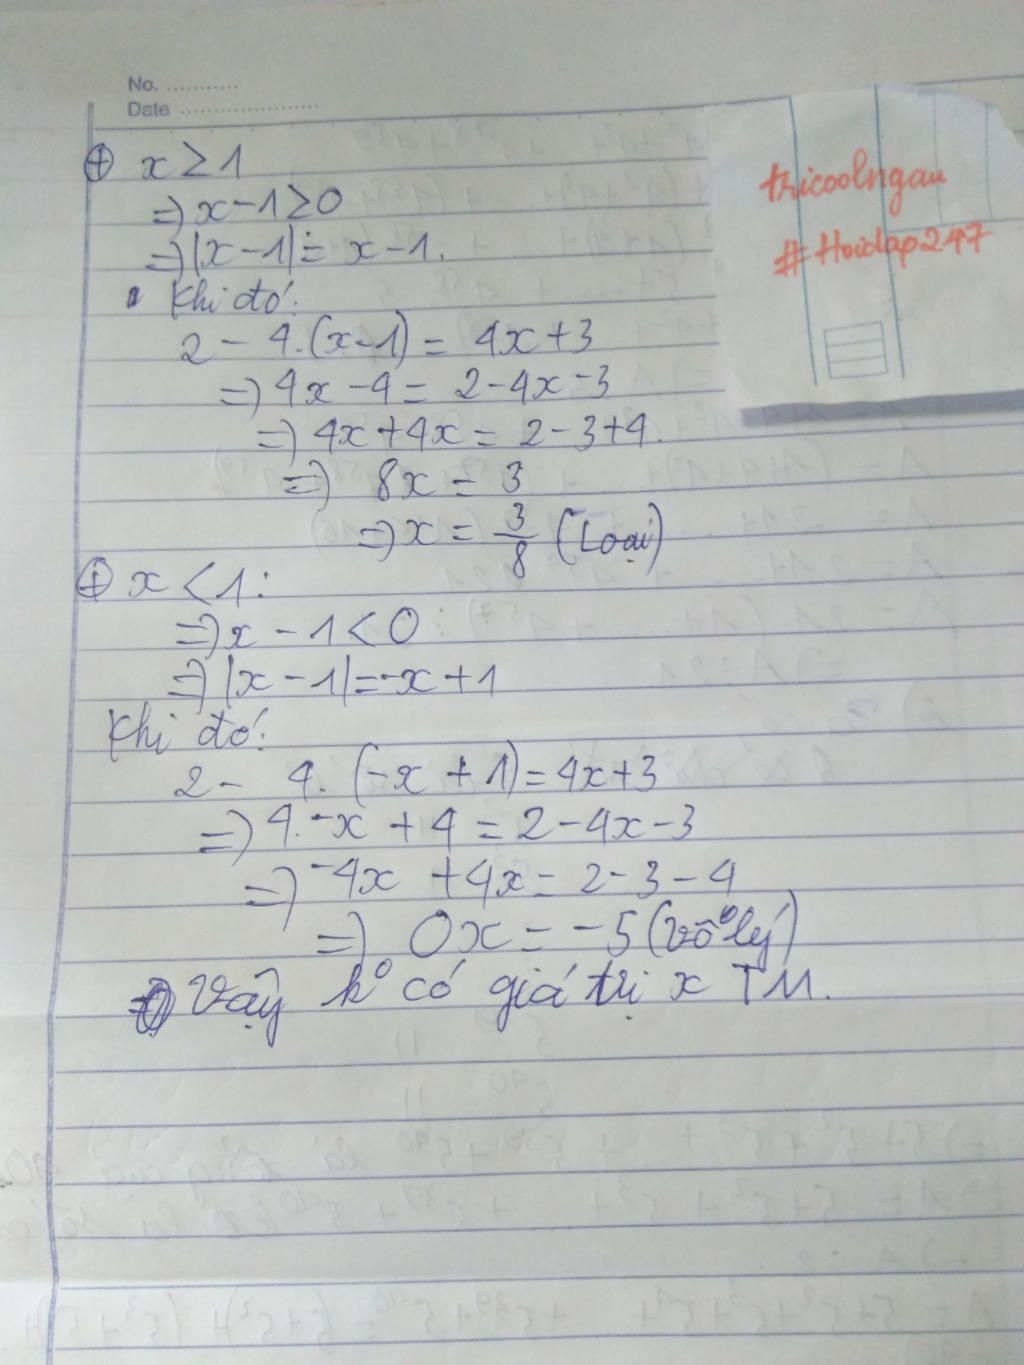 No. ............
Date ......................
tricoolngau
#Hoidap247
⊕ x ≥ 1
=) x-1 ≥ 0
=) |x-1| = x-1.
Khi đó:
2 - 4.(x-1) = 4x+3
=) 4x-4 = 2-4x-3
=) 4x+4x = 2-3+4.
=) 8x = 3
=) x = 3/8 (Loại)
⊕ x < 1:
=) x-1 < 0
=) |x-1| = -x+1
Khi đó:
2 - 4. (-x+1) = 4x+3
=) 4.-x + 4 = 2-4x-3
=) -4x + 4x = 2-3-4
=) 0x = -5 (vô lý)
Vậy k⁰ có giá trị x TM.